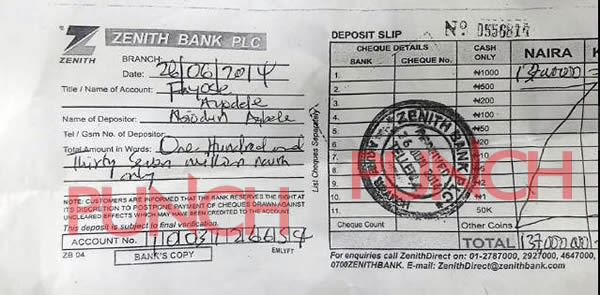 ZENITH BANK PLC
ZENITH
BRANCH:
Date: 26/06/2014
Title / Name of Account: Fayose
Ayodele
Name of Depositor: Abiodun Agbele
Tel / Gsm No. of Depositor:
Total Amount in Words: One Hundred and
Thirty Seven million naira
only
NOTE: CUSTOMERS ARE INFORMED THAT THE BANK RESERVES THE RIGHT AT
ITS DISCRETION TO POSTPONE PAYMENT OF CHEQUES DRAWN AGAINST
UNCLEARED EFFECTS WHICH MAY HAVE BEEN CREDITED TO THE ACCOUNT.
This deposit is subject to final verification.
ACCOUNT No.
ZB 04
BANK'S COPY
EMLYFT
List Cheques Separately
DEPOSIT SLIP
No 0556814
CHEQUE DETAILS
CASH ONLY
NAIRA
K
BANK
CHEQUE No.
1. ₦1000 137000000=
2. ₦500
3. ₦200
4. ₦100
5. ₦50
₦20
₦10
₦5
₦2
₦1
11. 50K
Cheque Count
Other Coins
TOTAL 137000000
For enquiries call ZenithDirect on: 01-2787000, 2927000, 4647000,
0700ZENITHBANK. E-mail: ZenithDirect@zenithbank.com
ZENITH BANK PLC
TELLER
PUNCH
PUNCH